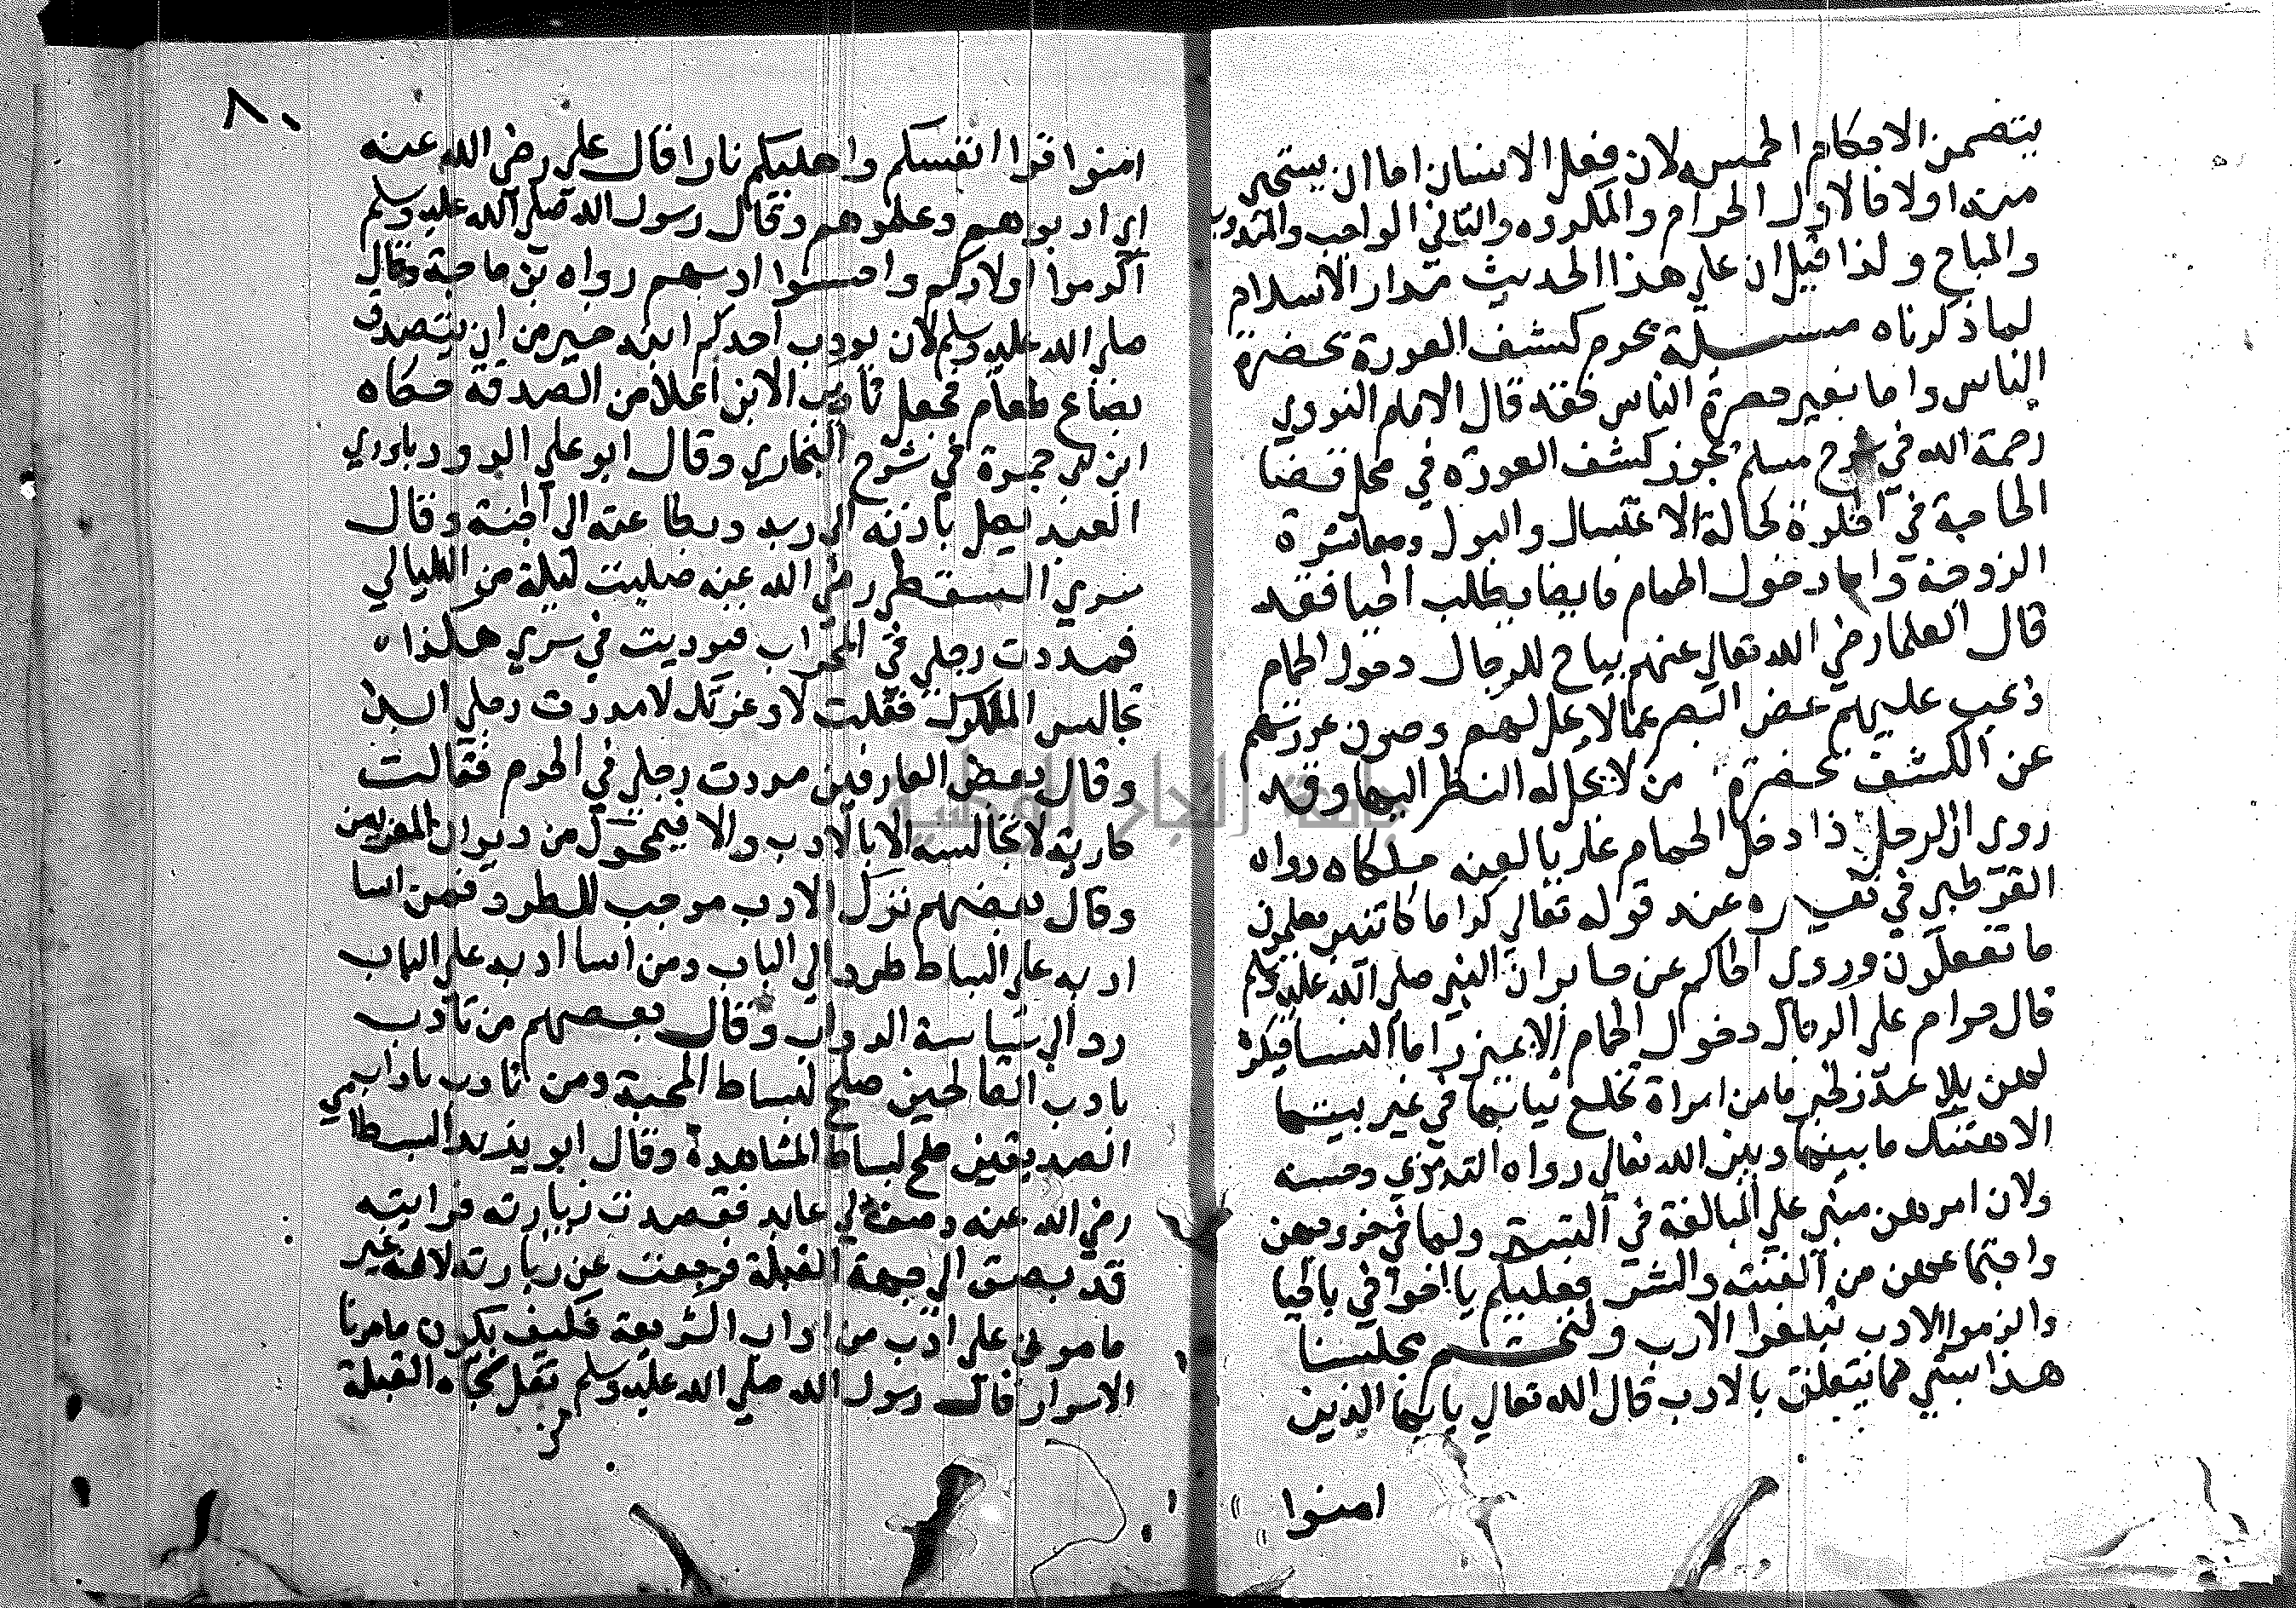 يتضمن الاحكام الخمسه لان فعل الانسان اما ان يستحي
منه اولا فالاول الحرام والمكروه والثاني الواجب والمندوب
والمباح ولذا قيل ان علي هذا الحديث مدار الاسلام
لما ذكرناه مسئلة يحرم كشف العورة بحضرة
الناس واما بغير حضرة الناس فقد قال الامام النووي
رحمة الله في شرح مسلم يجوز كشف العورة في محل قضا
الحاجة في الخلوة كحالة الاغتسال والبول ومعاشرة
الزوجة واما دخول الحمام فايضا يطلب الحيا فقد
قال العلما رضي الله تعالي عنهم يباح للرجال دخول الحمام
وجب عليهم غض البصر عما لا يحل لهم وصون عورتهم
عن الكشف بحضرة من لا يحل له النظر اليها وقد
روي ان الرجل اذا دخل الحمام عاريا لعنه ملكاه رواه
القرطبي في تفسيره عند قوله تعالي كراما كاتبين يعلمون
ما تفعلون وروي الحاكم عن جابر ان النبي صلي الله عليه وسلم
قال حرام علي الرجال دخول الحمام الا بميزر واما النسا فيكره
لهن بلا عذر لخبر ما من امراة تخلع ثيابها في غير بيتها
الا هتكت ما بينها وبين الله تعالي رواه الترمذي وحسنه
ولان امرهن مبني علي المبالغة في التستر ولما في خروجهن
واجتماعهن من الفتنه والشر فعليكم يا اخواني بالحيا
والزموا الادب تبلغوا الارب ولنختم مجلسنا
هذا بشي مما يتعلق بالادب قال الله تعالي يا ايها الذين
امنوا
٨٠
امنوا قوا انفسكم واهليكم نارا قال علي رضي الله عنه
اي ادبوهم وعلموهم وقال رسول الله صلي الله عليه وسلم
اكرموا اولادكم واحسنوا ادبهم رواه بن ماجة وقال
صلي الله عليه وسلم لان يودب احدكم ابنه خير من ان يتصدق
بصاع طعام فجعل تاديب الابن اعلا من الصدقة حكاه
ابن ابي جمرة في شرح البخاري وقال ابو علي الرودباري
العبد يصل بادبه الي ربه وبطاعته الي الجنة وقال
سري السقطي رضي الله عنه صليت ليلة من الليالي
فمددت رجلي في المحراب فنوديت في سري هكذا
تجالس الملوك فقلت لا وعزتك لا مددت رجلي ابدا
وقال بعض العارفين مددت رجلي في الحرم فقالت
جارية لا تجالسه الا بالادب والا فيمحوك من ديوان المقربين
وقال بعضهم ترك الادب موجب للطرد فمن اسا
ادبه علي البساط طرد الي الباب ومن اسا ادبه علي الباب
رد الي سياسة الدواب وقال بعضهم من تادب
بادب الصالحين صلح لبساط المحبة ومن تادب باداب
الصديقين صلح لبساط المشاهدة وقال ابو يزيد البسطامي
رضي الله عنه وصف لي عابد فقصدت زيارته فرايته
قد بصق الي جهة القبلة فرجعت عن زيارته لانه غير
مامون علي ادب من اداب الشريعة فكيف يكون مامونا
الاسرار قال رسول الله صلي الله عليه وسلم تفل تجاه القبلة